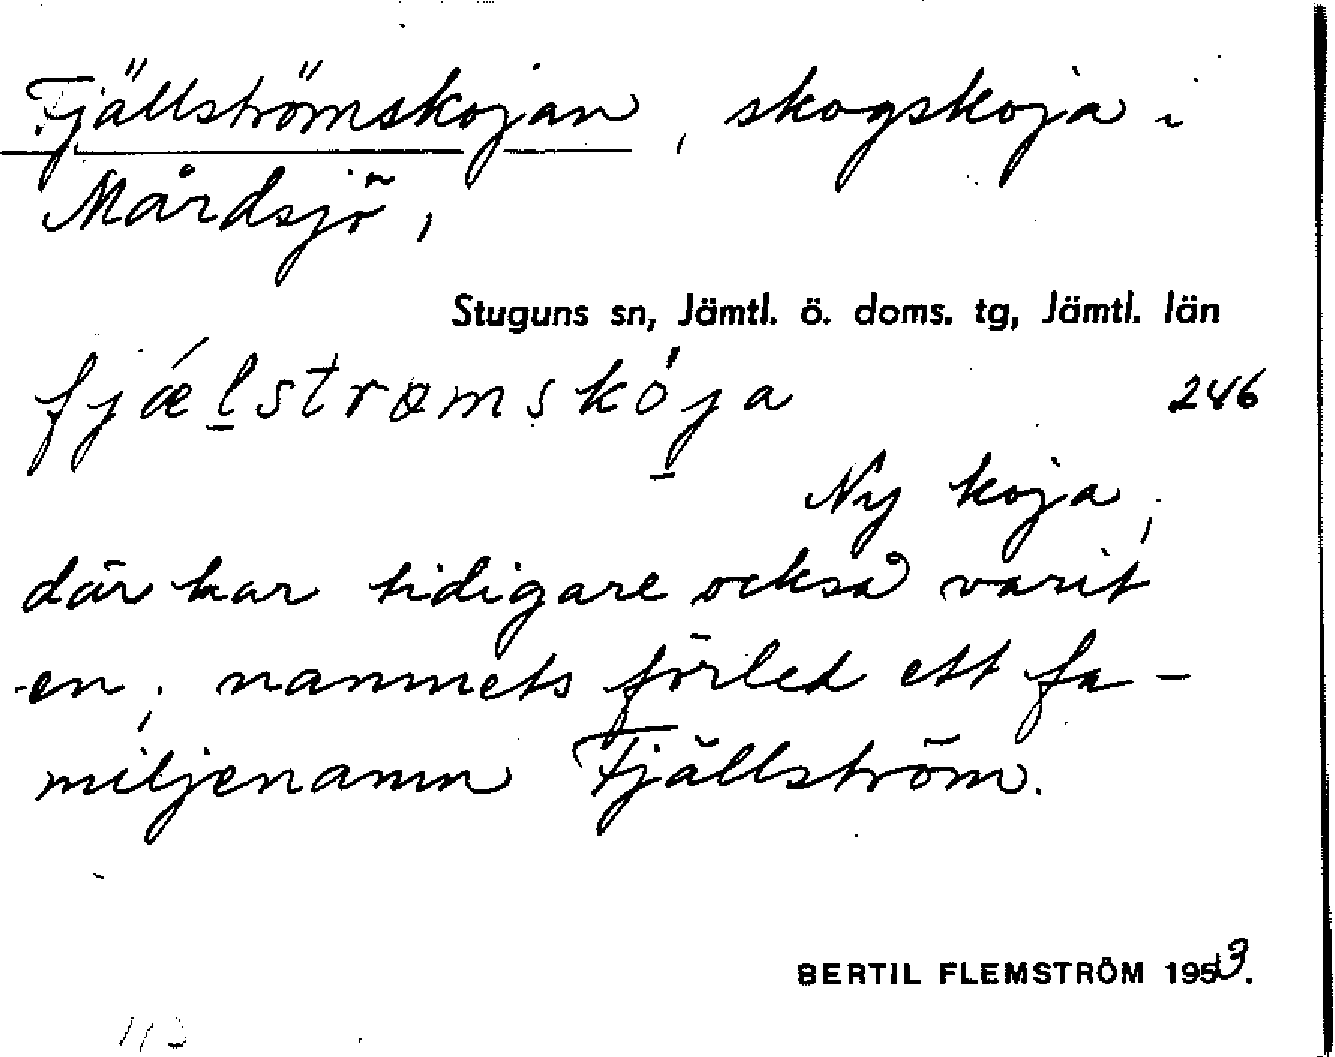 Fjällströmskojan, skogskoja i
Mårdsjö,
Stuguns sn, Jämtl. ö. doms. tg, Jämtl. län
fjǽl̠strœmskója̠ 246
Ny koja,
där har tidigare också varit
en; namnets förled ett fa-
miljenamn Fjällström.
BERTIL FLEMSTRÖM 1953.